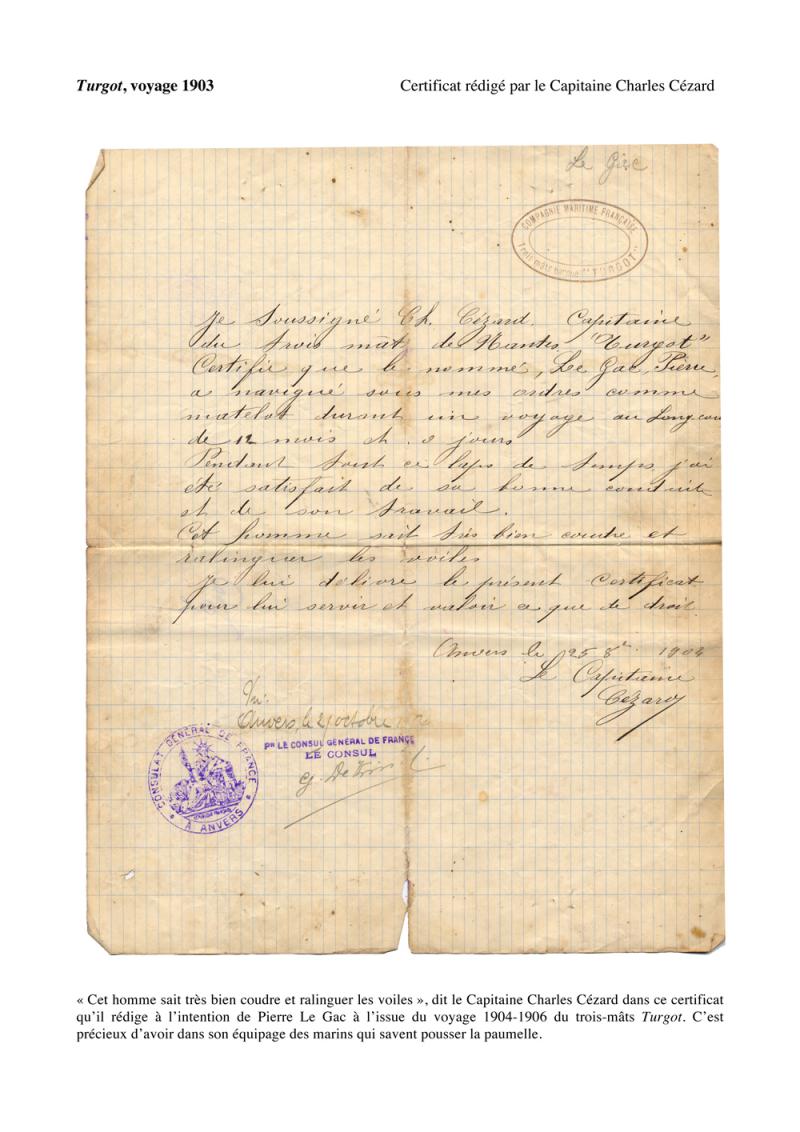 Turgot, voyage 1903
Certificat rédigé par le Capitaine Charles Cézard
Le Gac
COMPAGNIE MARITIME FRANÇAISE
Trois-mâts barque "TURGOT"
Je soussigné Ch. Cézard. Capitaine
du trois mat de Nantes "Turgot"
Certifie que le nommé, Le Gac, Pierre,
a navigué sous mes ordres comme
matelot durant un voyage au Long cou
de 12 mois et jours
Pendant tout ce laps de temps j'ai
été satisfait de sa bonne conduite
et de son travail.
Cet homme sait très bien coudre et
ralinguer les voiles
Je lui délivre le présent Certificat
pour lui servir et valoir ce que de droit.
Anvers le 25 8bre 1904
Le Capitaine
Cézard
Vu:
Anvers, le octobre
PR LE CONSUL GÉNÉRAL DE FRANCE
LE CONSUL
CONSULAT GÉNÉRAL DE FRANCE
À ANVERS
« Cet homme sait très bien coudre et ralinguer les voiles », dit le Capitaine Charles Cézard dans ce certificat
qu'il rédige à l'intention de Pierre Le Gac à l'issue du voyage 1904-1906 du trois-mâts Turgot. C'est
précieux d'avoir dans son équipage des marins qui savent pousser la paumelle.